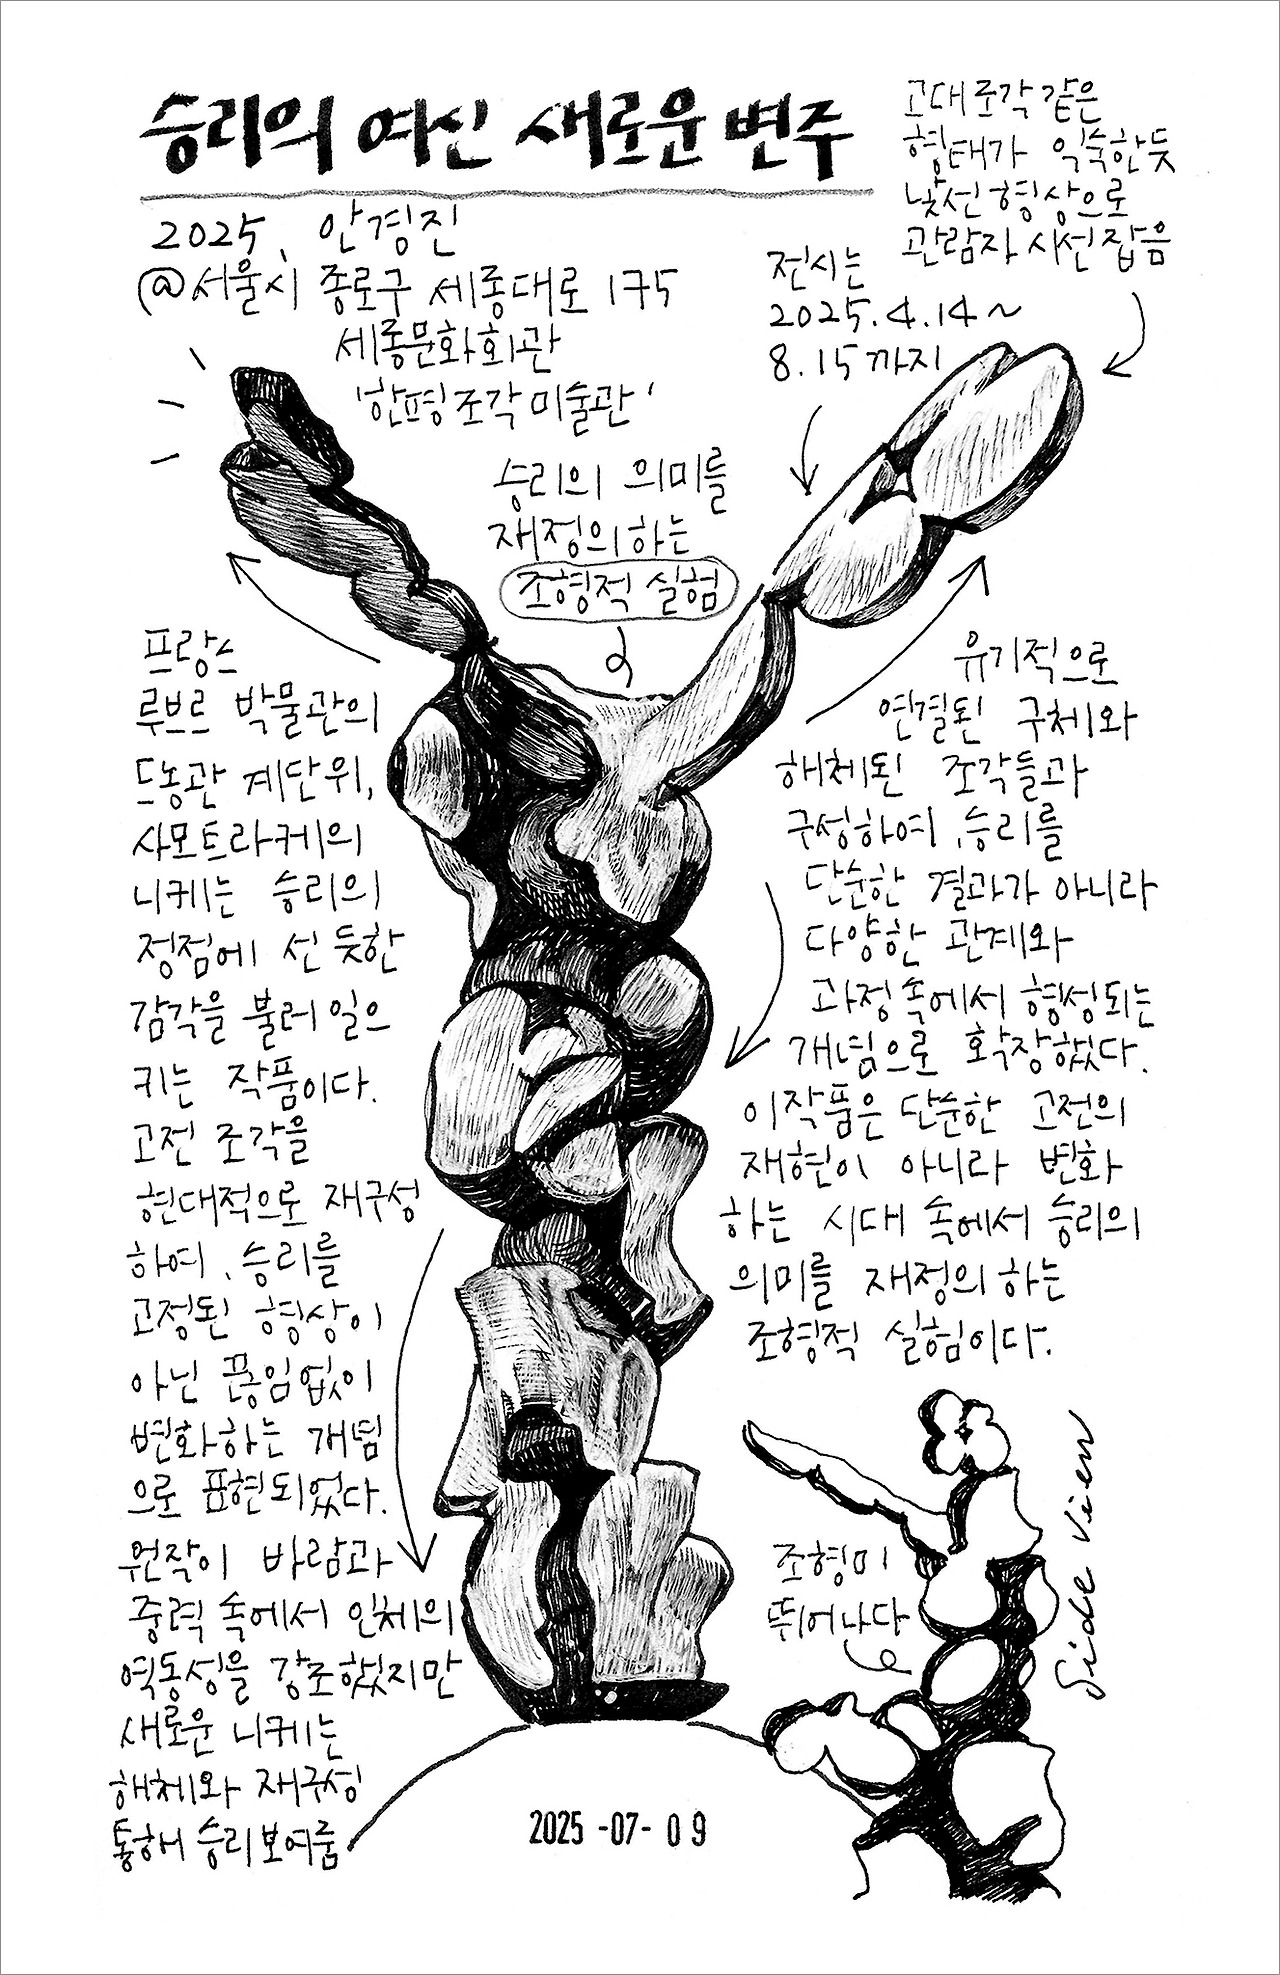 승리의 여신 새로운 변주
2025, 안경진
@서울시 종로구 세종대로 175
세종문화회관
'한평조각미술관'
고대조각 같은
형태가 익숙한듯
낯선 형상으로
관람자 시선 잡음
전시는
2025.4.14~
8.15까지
승리의 의미를
재정의하는
조형적 실험
프랑스
루브르 박물관의
드농관 계단위,
사모트라케의
니케는 승리의
정점에 선 듯한
감각을 불러 일으
키는 작품이다.
고전 조각을
현대적으로 재구성
하여, 승리를
고정된 형상이
아닌 끊임없이
변화하는 개념
으로 표현되었다.
원작이 바람과
중력 속에서 인체의
역동성을 강조했지만
새로운 니케는
해체와 재구성
통해 승리 보여줌
유기적으로
연결된 구체와
해체된 조각들과
구성하여, 승리를
단순한 결과가 아니라
다양한 관계와
과정 속에서 형성되는
개념으로 확장했다.
이 작품은 단순한 고전의
재현이 아니라 변화
하는 시대 속에서 승리의
의미를 재정의 하는
조형적 실험이다.
조형미
뛰어난다
Side View
2025-07-09